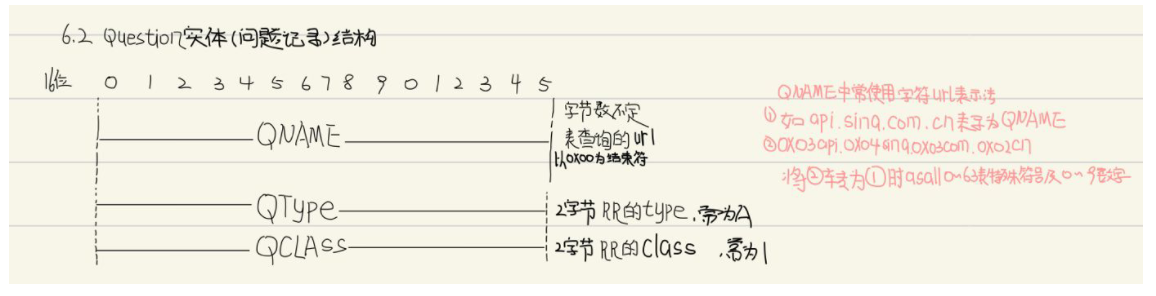 6.2 Question实体(问题记录)结构
16位 0 1 2 3 4 5 6 7 8 9 0 1 2 3 4 5
QNAME
字节数不定
表查询的url
以0x00为结束符
QType
2字节 RR的type,常为A
QCLASS
2字节 RR的class,常为1
QNAME中常使用字符url表示法
①如api.sina.com.cn表示为QNAME
②0X03api.0X04sina.0X03com.0X02cn
将②转为①时asall 0~63表特殊符号及0~9数字